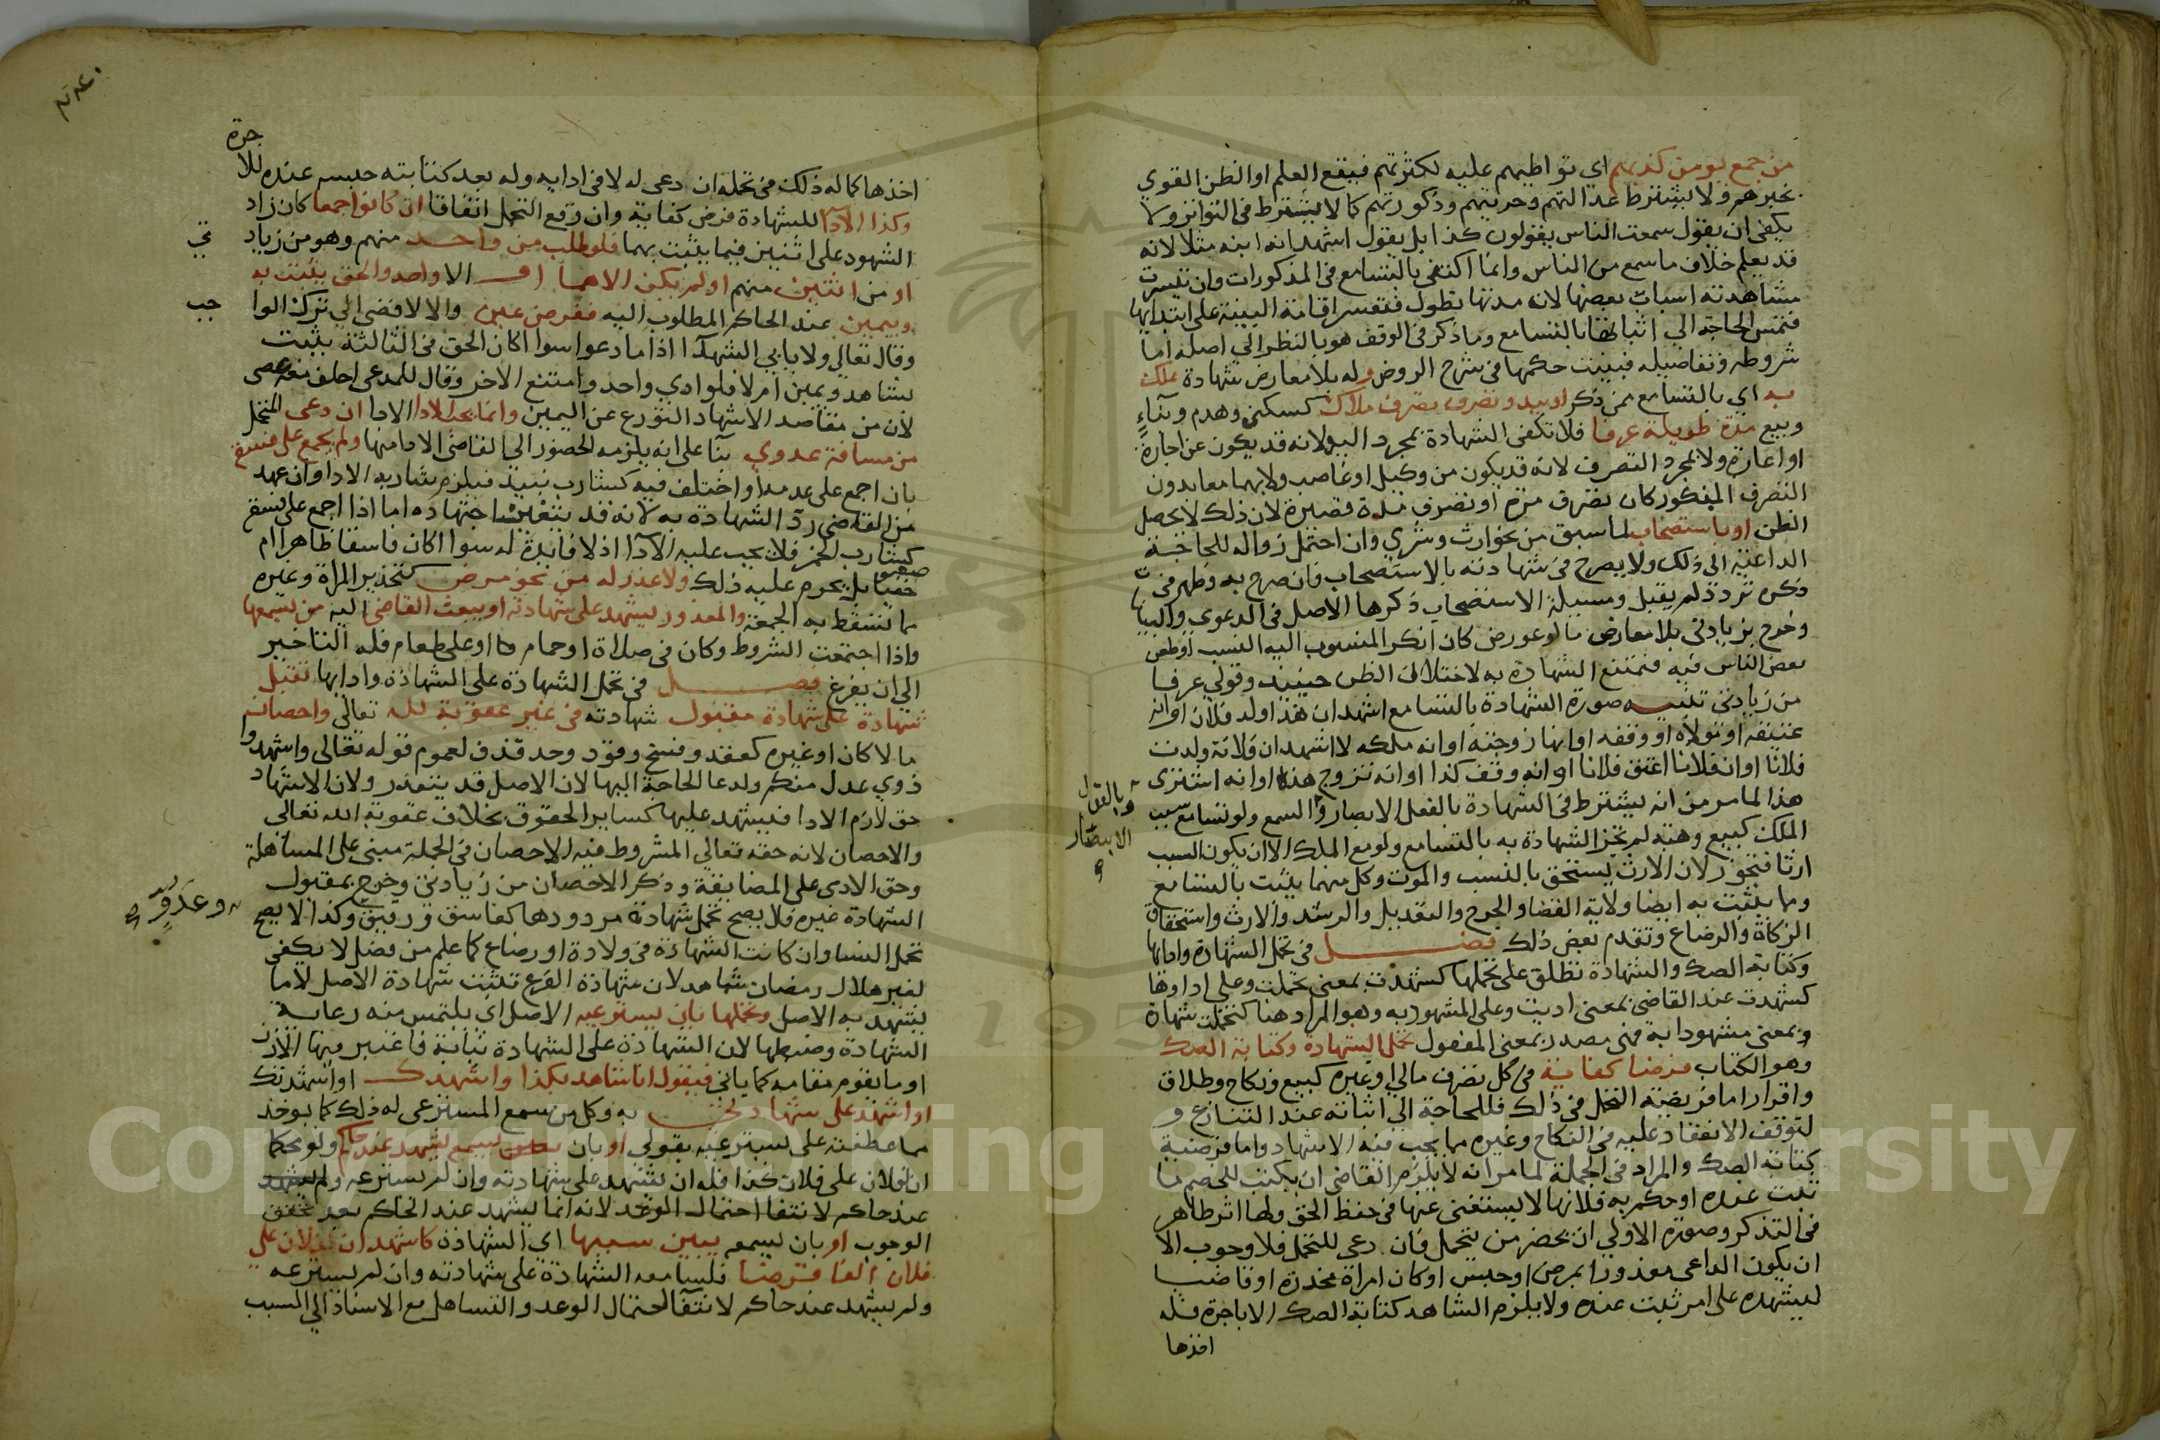 من جمع يومن كذبهم اي تواطيهم عليه لكثرتهم فيقع العلم او الظن القوي
بخبرهم ولا يشترط عدالتهم وحريتهم وذكورتهم كما لا يشترط في التواتر ولا
يكفي ان يقول سمعت الناس يقولون كذا بل يقول اشهد انه ابنه مثلا لانه
قد يعلم خلاف ما سمع من الناس وانما اكتفي بالتسامع في المذكورات وان تيسرت
مشاهدته اسباب بعضها لان مدتها تطول فتعسر اقامة البينة على ابتدايها
فتمس الحاجة الي اثباتها بالتسامع وما ذكر في الوقف هو بالنظر الي اصله اما
شروطه وتفاصيله فبينت حكمها في شرح الروض وله بلا معارض شهادة بملك
به اي بالتسامع ممن ذكر او بيد وتصرف تصرف ملاك كسكني وهدم وبناء
وبيع مدة طويلة عرفا فلا تكفي الشهادة بمجرد اليد لانه قد يكون عن اجارة
او اعارة ولا بمجرد التصرف لانه قد يكون من وكيل او غاصب ولا بهما معا بدون
التصرف المذكور كان تصرف مرة او تصرف مدة قصيرة لان ذلك لا يحصل
الظن او باستصحاب لما سبق من نحو ارث وشري وان احتمل زواله للحاجة
الداعية الي ذلك ولا يصرح في شهادته بالاستصحاب فان صرح به وظهر في
ذكره تردد لم يقبل ومسيلة الاستصحاب ذكرها الاصل في الدعوي والبينات
وخرج بزيادتي بلا معارض ما لو عورض كان انكر المنسوب اليه النسب او طعن
بعض الناس فيه فتمتنع الشهادة به لاختلال الظن حينيذ وقولي عرفا
من زيادتي تنبيه صورة الشهادة بالتسامع اشهد ان هذا ولد فلان او انه
عتيقه او مولاه او وقفه او انها زوجته او انه ملكه لا اشهد ان فلانة ولدت
فلانا او ان فلانا اعتق فلانا او انه وقف كذا او انه تزوج هذه او انه اشتري
هذا لما مر من انه يشترط في الشهادة بالفعل الابصار والسمع ولو تسامع سبب
وبالقول
الابصار
الملك كبيع وهبة لم تجز الشهادة به بالتسامع ولو مع الملك الا ان يكون السبب
ارثا فتجوز لان الارث يستحق بالنسب والموت وكل منهما يثبت بالتسامع
ومما يثبت به ايضا ولاية القضا والجرح والتعديل والرشد والارث واستحقاق
الزكاة والرضاع وتقدم بعض ذلك فصل في تحمل الشهادة وادايها
وكتابة الصك والشهادة تطلق على تحملها كشهدت بمعني تحملت وعلى ادايها
كشهدت عند القاضي بمعني اديت وعلى المشهود به وهو المراد هنا كتحملت شهادة
بمعني مشهودا به فهي مصدر بمعني المفعول تحمل الشهادة وكتابة الصك
وهو الكتاب فرضا كفاية في كل تصرف مالي او غيره كبيع ونكاح وطلاق
واقرار اما فرضية التحمل في ذلك فللحاجة الي اثباته عند التنازع و
لتوقف الانعقاد عليه في النكاح وغيره مما يجب فيه الاشهاد واما فرضية
كتابة الصك والمراد في الجملة لما مر انه لا يلزم القاضي ان يكتب للخصم ما
ثبت عنده او حكم به فلانها لا يستغني عنها في حفظ الحق ولها اثر ظاهر
في التذكر وصورة الاولي ان يحضر من يتحمل فان دعي للتحمل فلا وجوب الا
ان يكون الداعي معذورا بمرض او حبس او كان امراة مخدرة او قاضيا
ليشهده على امر ثبت عنده ولا يلزم الشاهد كتابة الصك الا باجرة فله
اخذها
اخذها كما له ذلك في تحمله ان دعي له لا في ادايه وله بعد كتابته حبسه عنده للا
جرة
وكذا الادا للشهادة فرض كفاية وان وقع التحمل اتفاقا ان كانوا جمعا كان زاد
الشهود على اثنين فيما يثبت بهما فلو طلب من واحد منهم وهو من زيادتي
او من اثنين منهم او لم يكن الا هما او الا واحد والحق يثبت به
وبيمين عند الحاكم المطلوب اليه ففرض عين والا لافضي الي ترك الوا
جب
وقال تعالي ولا يابي الشهدآ اذا ما دعوا سوا اكان الحق في الثالثة يثبت
بشاهد ويمين ام لا فلو ادي واحد وامتنع الاخر وقال للمدعي احلف معه عصي
لان من مقاصد الاشهاد التورع عن اليمين وانما يجب الادا ان دعي المتحمل
من مسافة عدوي بنا على انه يلزمه الحضور الي القاضي للادا منها ولم يجمع على فسقه
بان اجمع على عدمه او اختلف فيه كشارب نبيذ فيلزم شاربه الادا وان عهد
من القاضي رد الشهادة به لانه قد يتغير اجتهاده اما اذا اجمع على فسقه
كشارب الخمر فلا يجب عليه الادآ اذ لا فايدة له سوا اكان فاسقا ظاهرا ام
خفيا بل يحرم عليه ذلك ولا عذر له من نحو مرض كتخدير المراة وغيره
مما تسقط به الجمعة والمعذور يشهد على شهادته او يبعث القاضي اليه من يسمعها
واذا اجتمعت الشروط وكان في صلاة او حمام او على طعام فله التاخير
الي ان يفرغ فصل في تحمل الشهادة على الشهادة وادايها تقبل
شهادة على شهادة مقبول شهادته في غير عقوبة لله تعالي واحصان
ما لا كان او غيره كعقد وفسخ وقود وحد قذف لعموم قوله تعالي واشهدوا
ذوي عدل منكم ولدعا الحاجة اليها لان الاصل قد يتعذر ولان الاشهاد
حق لازم الادا فيشهد عليها كساير الحقوق بخلاف عقوبة الله تعالي
والاحصان لانه حقه تعالي المشروط فيه الاحصان في الجملة مبني على المساهلة
وحق الادمي على المضايقة وذكر الاحصان من زيادتي وخرج بمقبول
الشهادة غيره فلا يصح تحمل شهادة مردودها كفاسق ورقيق وكذا لا يصح
وعدو
تحمل النسا وان كانت الشهادة في ولادة او رضاع كما علم من فصل لا يكفي
لغير هلال رمضان شاهد لان شهادة الفرع تثبت شهادة الاصل لا ما
يشهد به الاصل وتحملها بان يسترعيه الاصل اي يلتمس منه رعاية
الشهادة وضبطها لان الشهادة على الشهادة نيابة فاعتبر فيها الاذن
او ما يقوم مقامه كما ياتي فيقول انا شاهد بكذا واشهدك او اشهدتك
او اشهد على شهادتي به وكل من سمع المسترعي له ذلك كما يوخذ
مما عطفته على يسترعيه بقولي او بان يسمعه يشهد عند حاكم ولو محكما
ان لفلان على فلان كذا فله ان يشهد على شهادته وان لم يسترعه ولم يشهد
عند حاكم لانتفا احتمال الوعد لانه انما يشهد عند الحاكم بعد تحقق
الوجوب او بان يسمعه يبين سببها اي الشهادة كاشهد ان لفلان على
فلان الفا قرضا فلسامعه الشهادة على شهادته وان لم يسترعه
ولم يشهد عند حاكم لانتفآ احتمال الوعد والتساهل مع الاسناد الي السبب